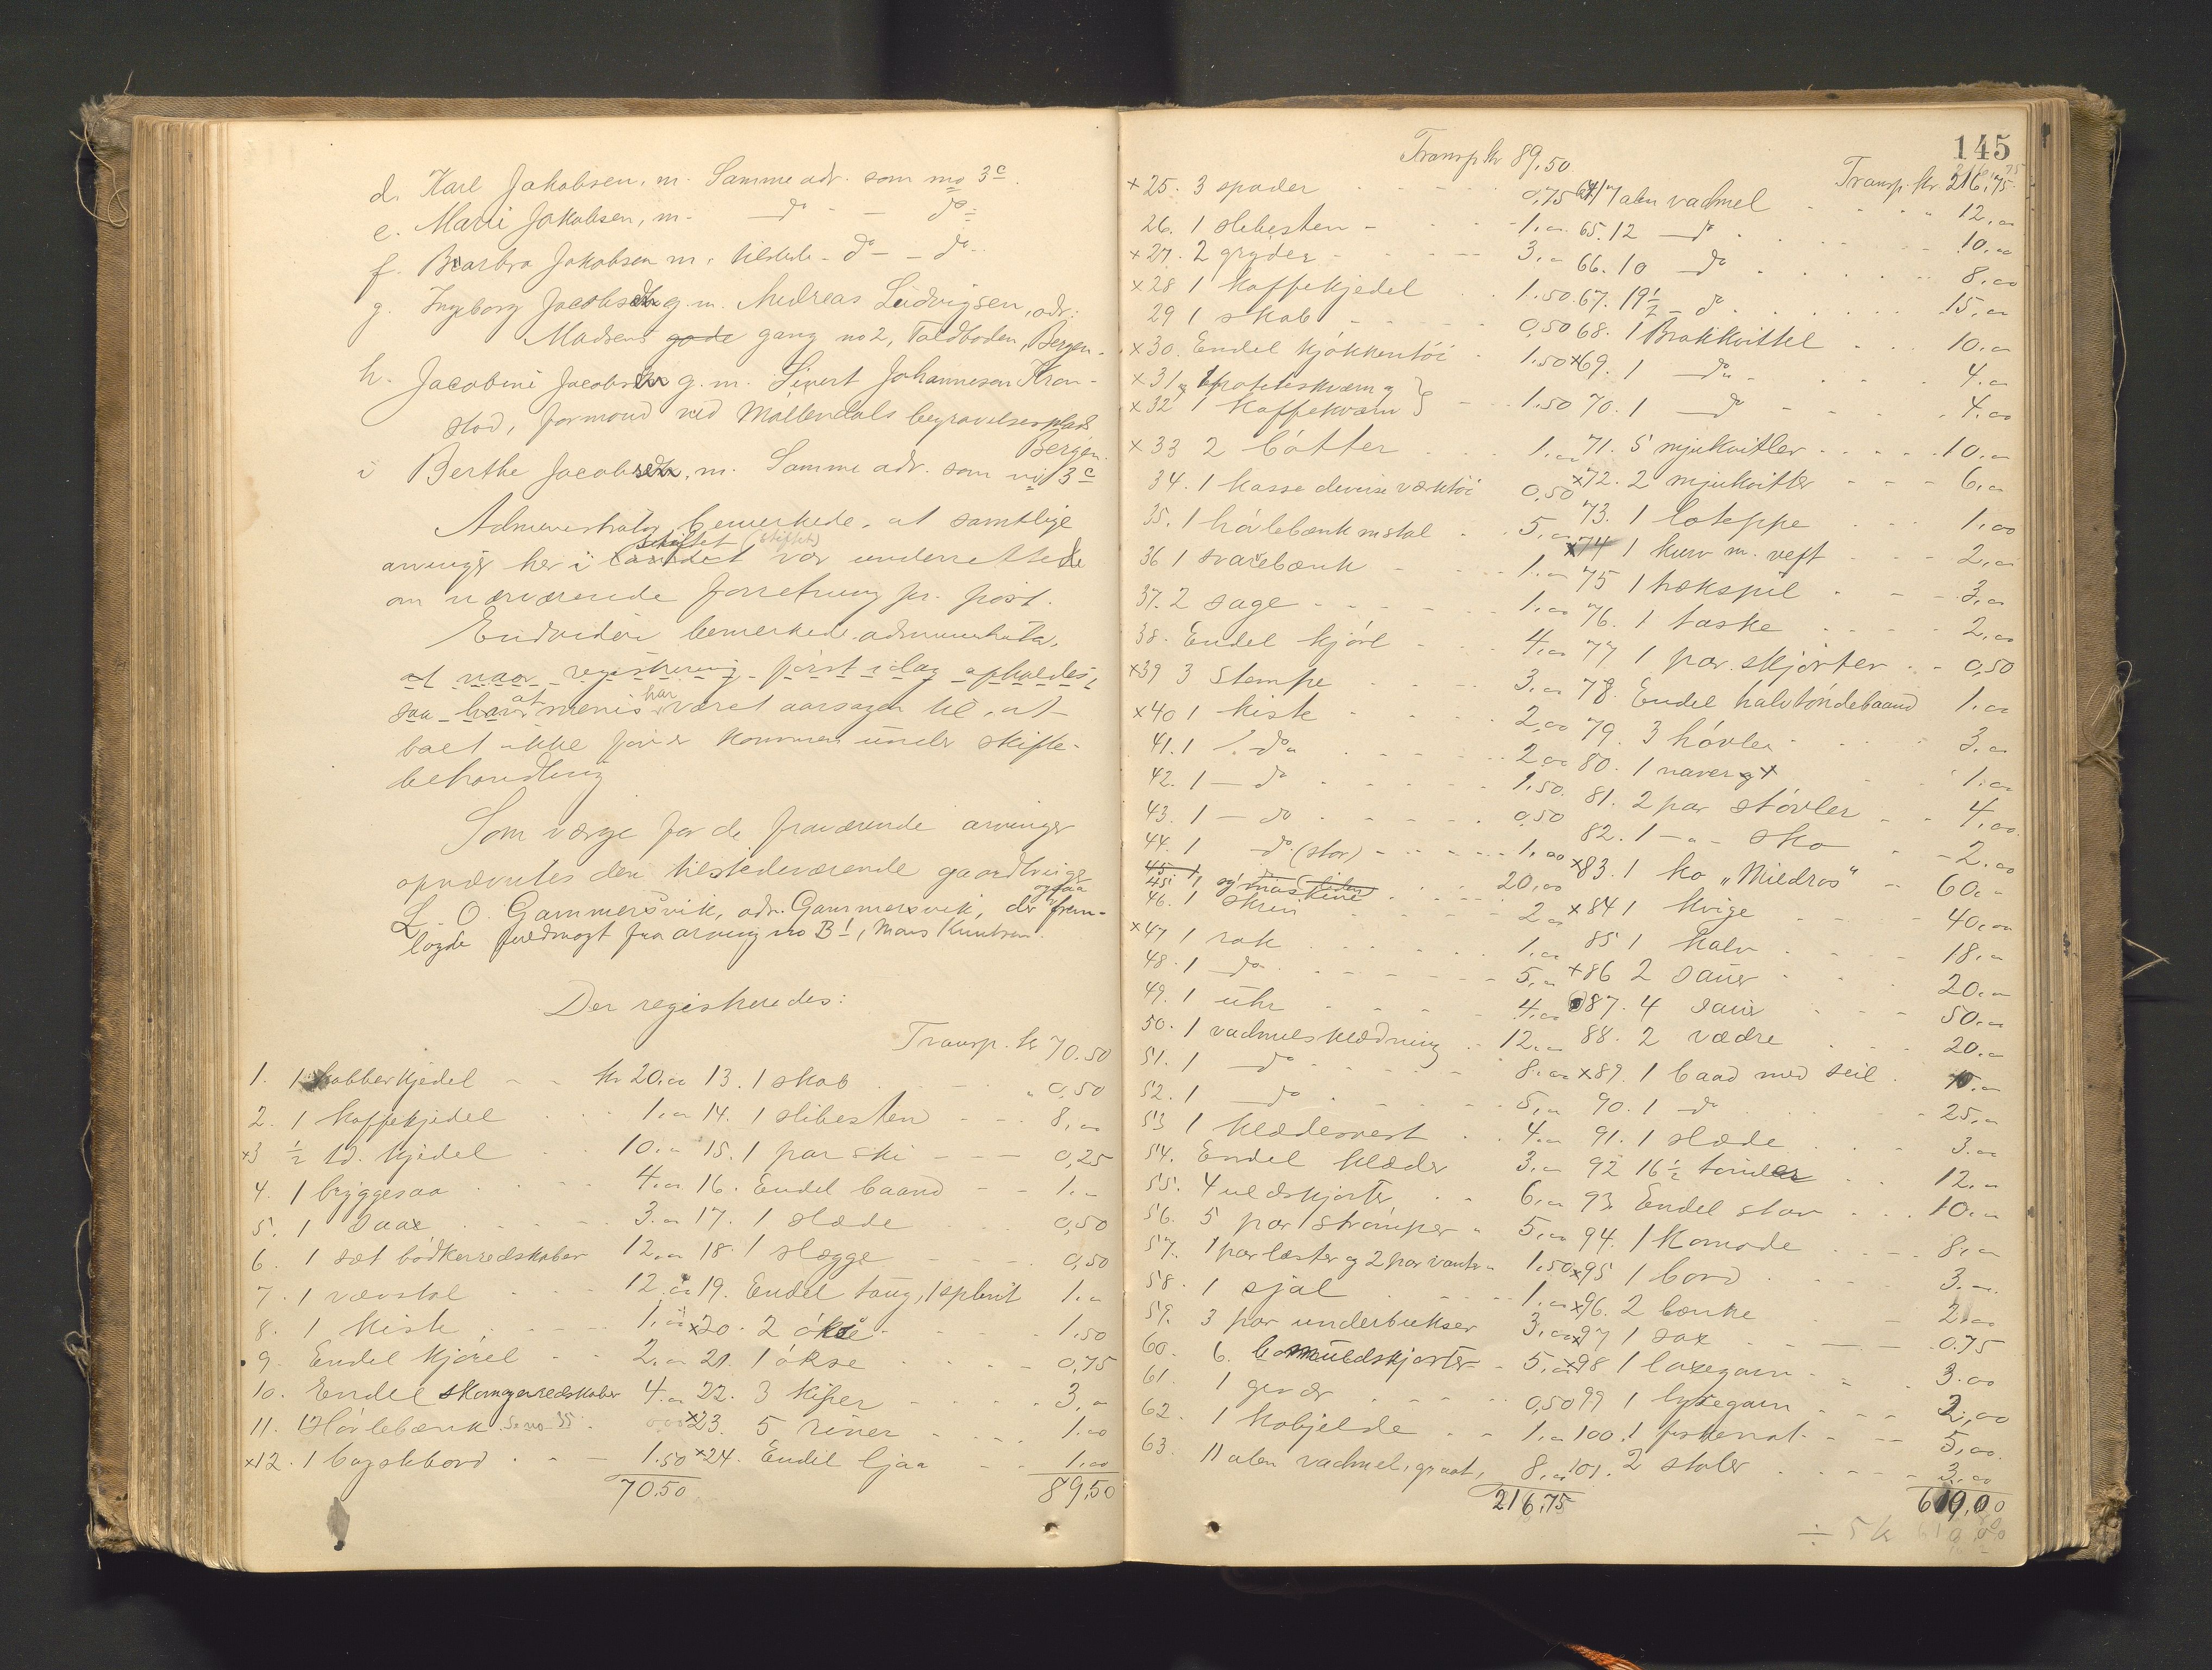 d. Karl Jakobsen, m. Samme adr. som no 3c.
e. Marii Jakobsen, m. — do — do
f. Barbra Jakobsen m. tilstede - do - do
g. Ingeborg Jacobsen g.m. Andreas Ludvigsen, adr:
Madsens gade gang no 2, Toldboden, Bergen.
h. Jacobine Jacobsen g.m. Sivert Johannesen Kron-
stad, formand ved Möllendals begravelsesplads
Bergen.
i Berthe Jacobsen, m. Samme adr. som no 3c
Administrator bemerkede, at samtlige
skiftet (stiftet)
arvinger her i var underrettede
om nærværende forretning pr. post.
Endvidere bemerkede administrator,
at naar registrering först idag afholdes,
saa at menes har været aarsagen til, at
boet ikke för er kommen under skifte-
behandling
Som verge for de fraværende arvinger
opnævntes den tilstedeværende gaardbruger
L. O. Gammersvik, adr. Gammersvik, der ogsaa frem-
lagde fuldmagt fra arving no B1, Mons Knutsen.
Der registreredes:
1. 1 kobberkjedel - - kr 20.00
2. 1 kaffekjedel 1.00
x3 ½ td. kjedel 10.00
4. 1 bryggesaa 4.00
5. 1 saax 3.00
6. 1 sæt bödkerredskaber 12.00
7. 1 vævstol 12.00
8. 1 kiste 1.00
9. Endel kjörel 2.00
10. Endel skomagerredskaber 4.00
11. 1 Hövlebænk. Se no 35.
x12. 1 bagstebord 1.50
70.50
Transp. kr 70.50
13. 1 skab 0,50
14. 1 slibesten 8,00
15. 1 par ski 0,25
16. Endel baand 1.-
17. 1 slæde 0,50
18. 1 slægge 0,50
19. Endel taug, 1 splint 1.00
x20. 2 ökse 1.50
21. 1 ökse 0,75
22. 3 kiper 3,00
x23. 5 river 1.00
x24. Endel ljaa 1,00
89,50
145
Transp kr 89,50
x25. 3 spader 0,75
26. 1 slibesten 1.00
x27. 2 gryder 3,00
x28 1 kaffekjedel 1.50
29 1 skab 0,50
x30. Endel kjökkentöi 1.50
x31 1 potteskværn og
x32 1 kaffekværn } 1.50
x33 2 bötter 1.00
34. 1 kasse diverse værktöi 0,50
35. 1 hövlebænk m stol 5,00
36 1 svarebænk 1.00
37. 2 sage 1,00
38. Endel kjörl 4,00
x39 3 Stampe 3,00
x40 1 kiste 2,00
41. 1 do 2,00
42. 1 — do 1.50
43. 1 — do 0,50
44. 1 do (stor) 1,00
45 1 symaskine 20,00
46. 1 skrin 2,00
x47 1 rok 1,00
48. 1 do 5,00
49. 1 uhr 4,00
50. 1 vadmelsklædning 12,00
51. 1 do 8.00
52. 1 do 5,00
53 1 klædesvest 4,00
54. Endel klæder 3,00
55. 4 uldskjorter 6,00
56. 5 par strömper 5,00
57. 1 par læster og 2 par vanter 1,50
58. 1 sjal 1,00
59. 3 par underbukser 3,00
60. 6. bomuldskjorter 5,00
61. 1 gevær 0,50
62. 1 kobjelde 1,00
63. 11 alen vadmel, graat, 8,00
216,75
Transp. kr. 216,75
64. 17 alen vadmel 12,00
65. 12 — do 10.00
66. 10 — do 8,00
67. 19½ — do 15,00
68. 1 Brakkvittel 10.00
x69. 1 do 4.00
70. 1 do 4.00
71. 5 mjukvitler 10.00
x72. 2 mjukvitler 6,00
73. 1 loteppe 1,00
x74 1 kurv m. veft 2,00
75 1 trækspil 3,00
76. 1 taske 2,00
77 1 par. skjörter 0,50
78. Endel halvtöndebaand 1.00
79. 3 hövler 3,00
80. 1 naver 1.00
81. 2 par stövler 4,00
82. 1 - " - sko 2.00
x83. 1 ko „Mildros" 60,-
x84 1 kvige 40,00
85 1 kalv 18.00
x86 2 sauer 20.00
87. 4 sauer 50.00
88. 2 vædre 20.00
x89. 1 baad med seil
90. 1 do 25,00
91. 1 slæde 3.00
92 16½ tönder 12.00
93. Endel stav 10.00
94. 1 Komode 8,00
x95 1 bord 3.-
x96. 2 bænke 2,00
x97 1 sax 0.75
x98 1 laxegarn 3.00
99 1 lysegarn 2,00
100. 1 fiskenot 5,00
101. 2 stoler 3.00
619,00
÷ 5 kr